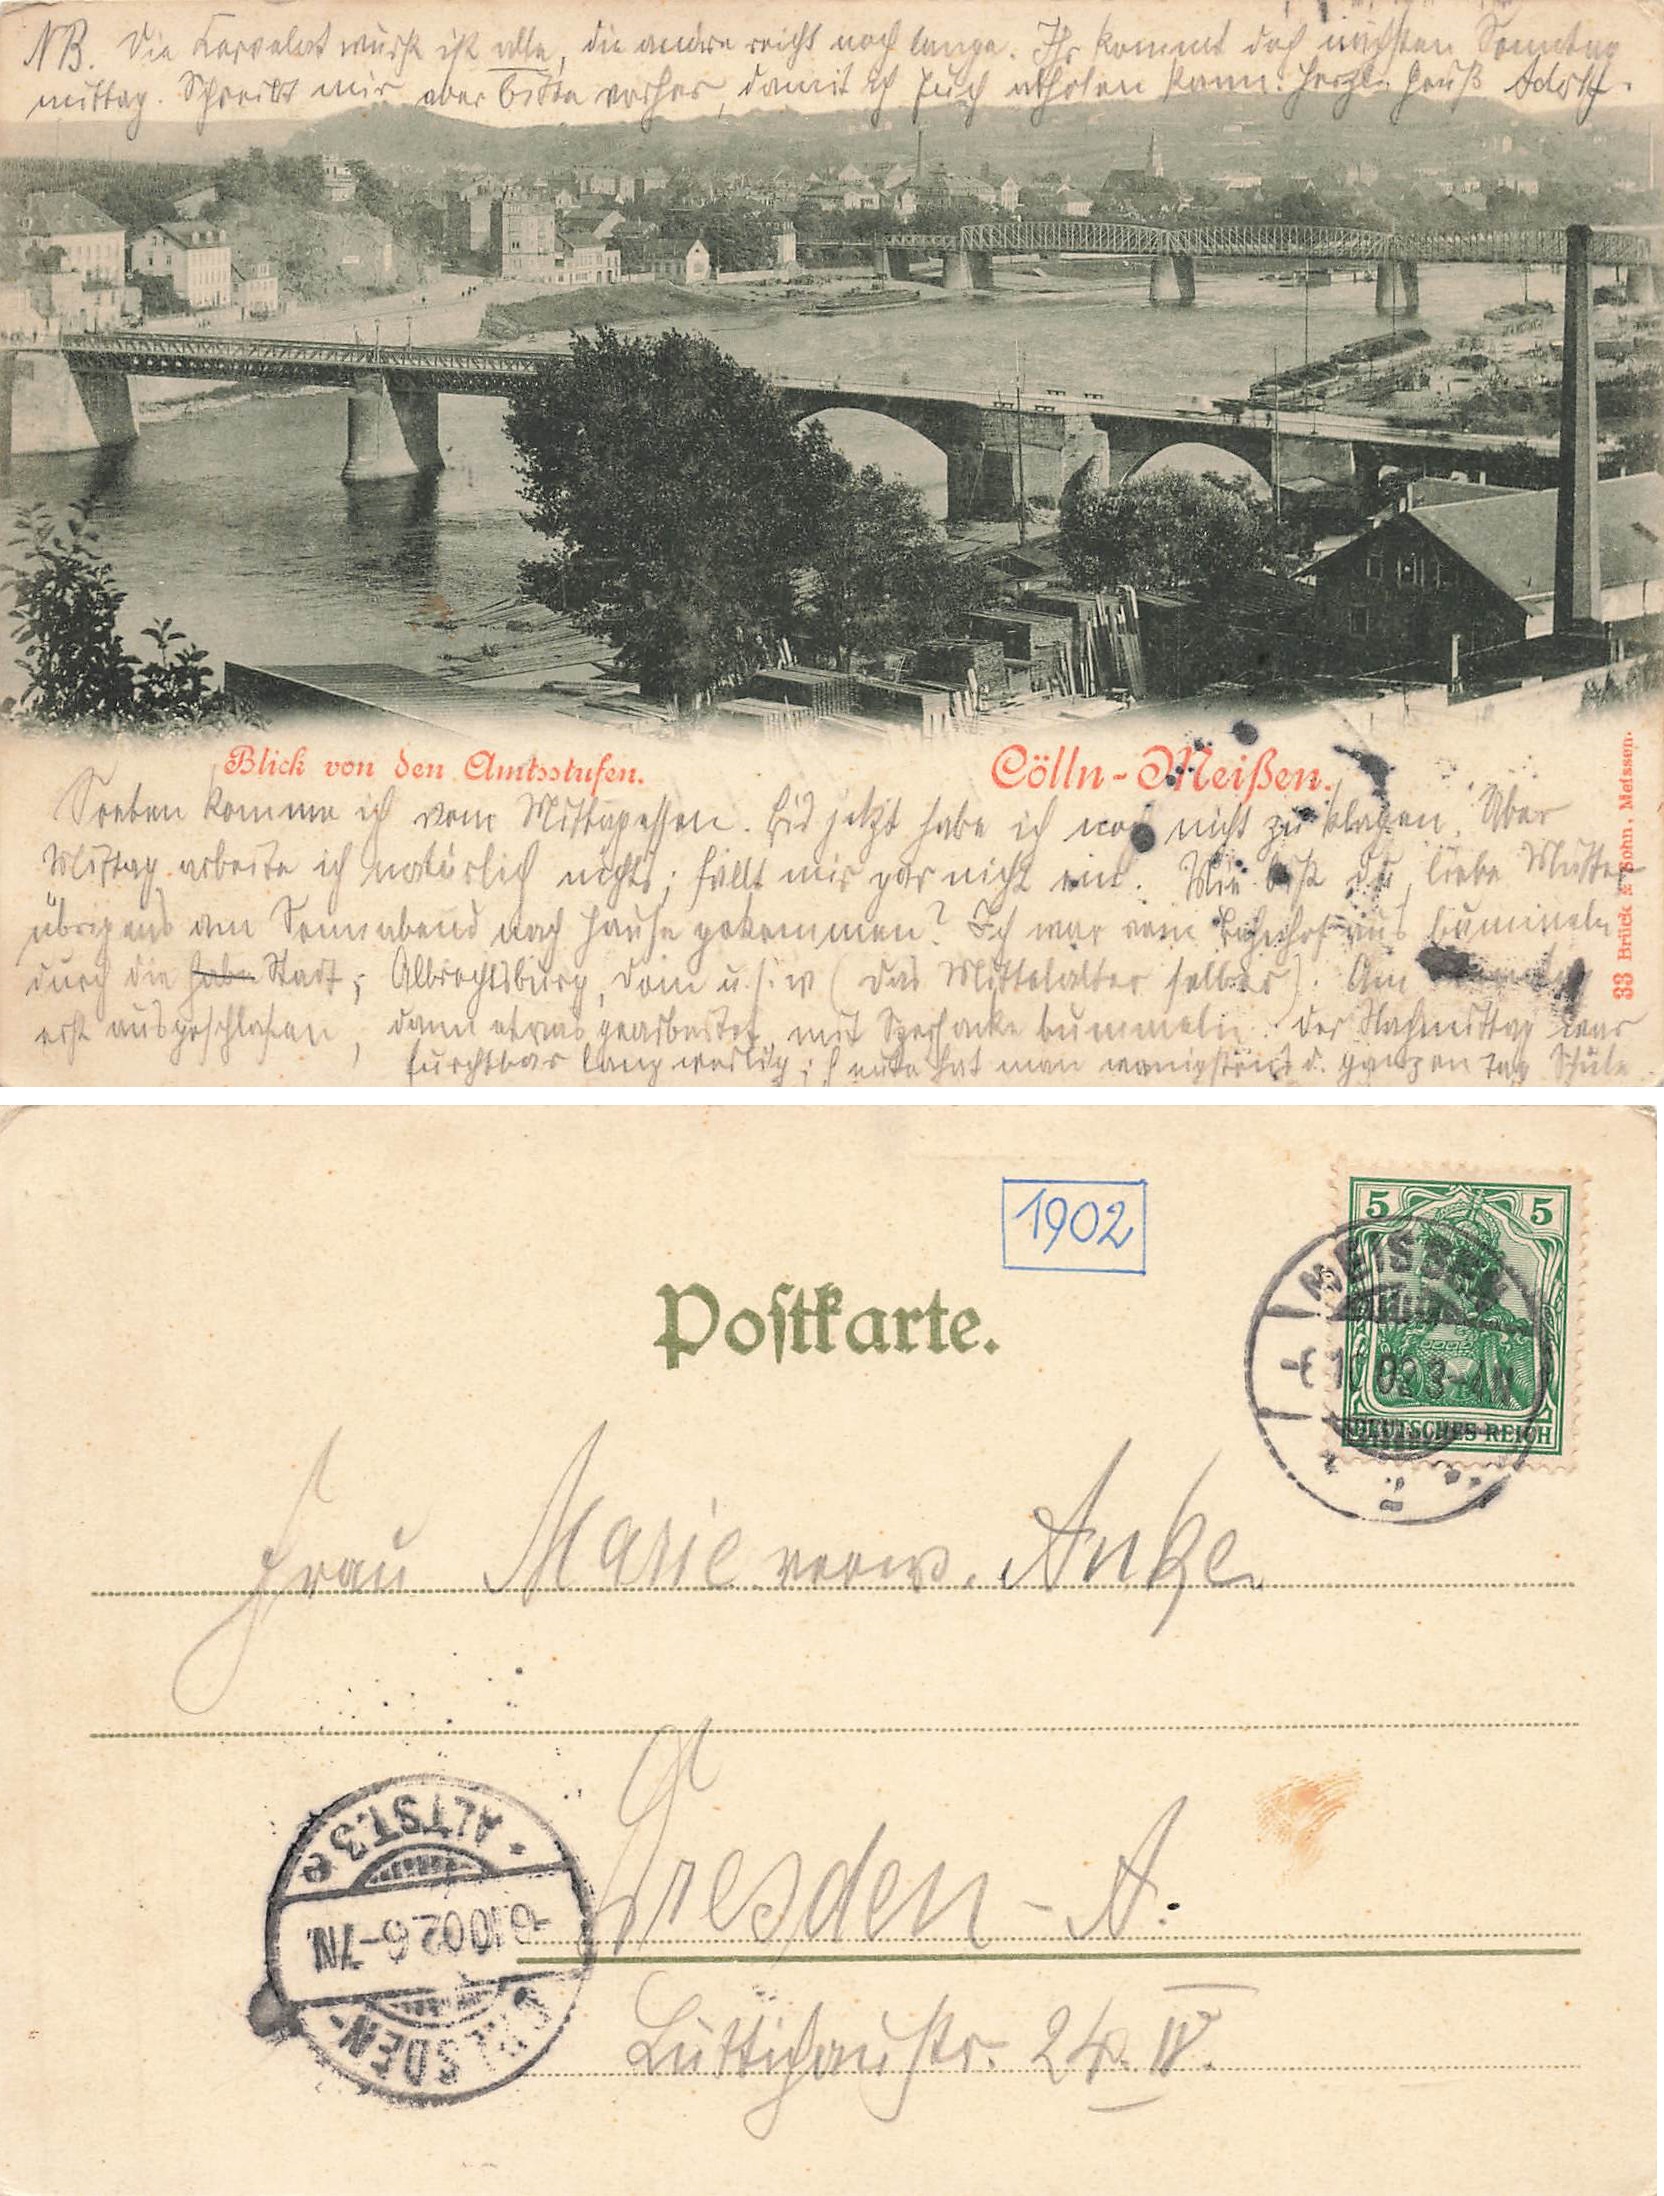 NB. Die Cervelatwurst ist alle, die andere reicht noch lange. Ihr kommt doch nächsten Sonntag
mittag. Schreibt mir aber bitte vorher, damit ich Euch abholen kann. Herzl. Gruß Adolf.
Blick von den Amtsstufen.
Cölln-Meißen.
33 Brück & Sohn, Meissen.
Soeben komme ich vom Mittagessen. Bis jetzt habe ich noch nicht zu klagen. Über
Mittag arbeite ich natürlich nichts; fällt mir gar nicht ein. Wie bist du, liebe Mutter
übrigens am Sonnabend nach Hause gekommen? Ich war vom Bahnhof aus bummeln
durch die Stadt; Albrechtsburg, Dom u.s.w (das Mittelalter selber). Am
erst ausgeschlafen, dann etwas gearbeitet, mit bummeln. Der Nachmittag war
furchtbar langweilig; heute hat man wenigstens d. ganzen Tag Schule
1902
5 5
DEUTSCHES REICH
MEISSEN
-6.10.02 3-4N
Postkarte.
Frau Marie verw. Anke.
Dresden-A.
Lüttichaustr. 24. IV.
DRESDEN-
-6.10.02 6-7N.
* ALTST. 3 e